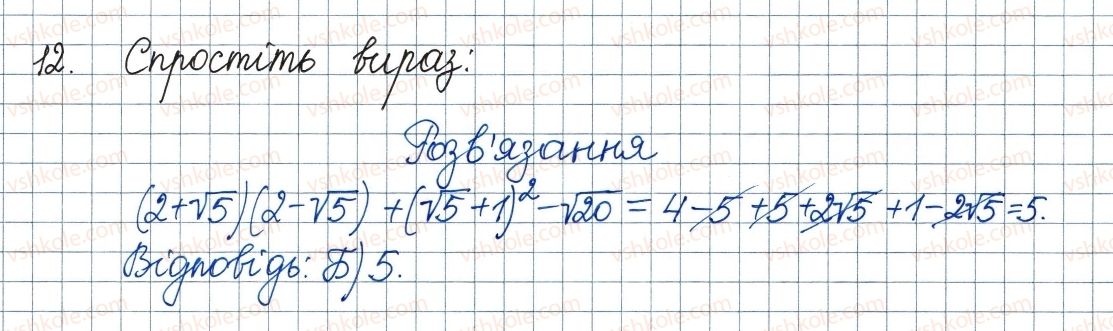 12. Спростіть вираз:
Розв'язання
(2+√5)(2-√5)+(√5+1)²-√20=4-5+5+2√5+1-2√5=5.
Відповідь: Б) 5.